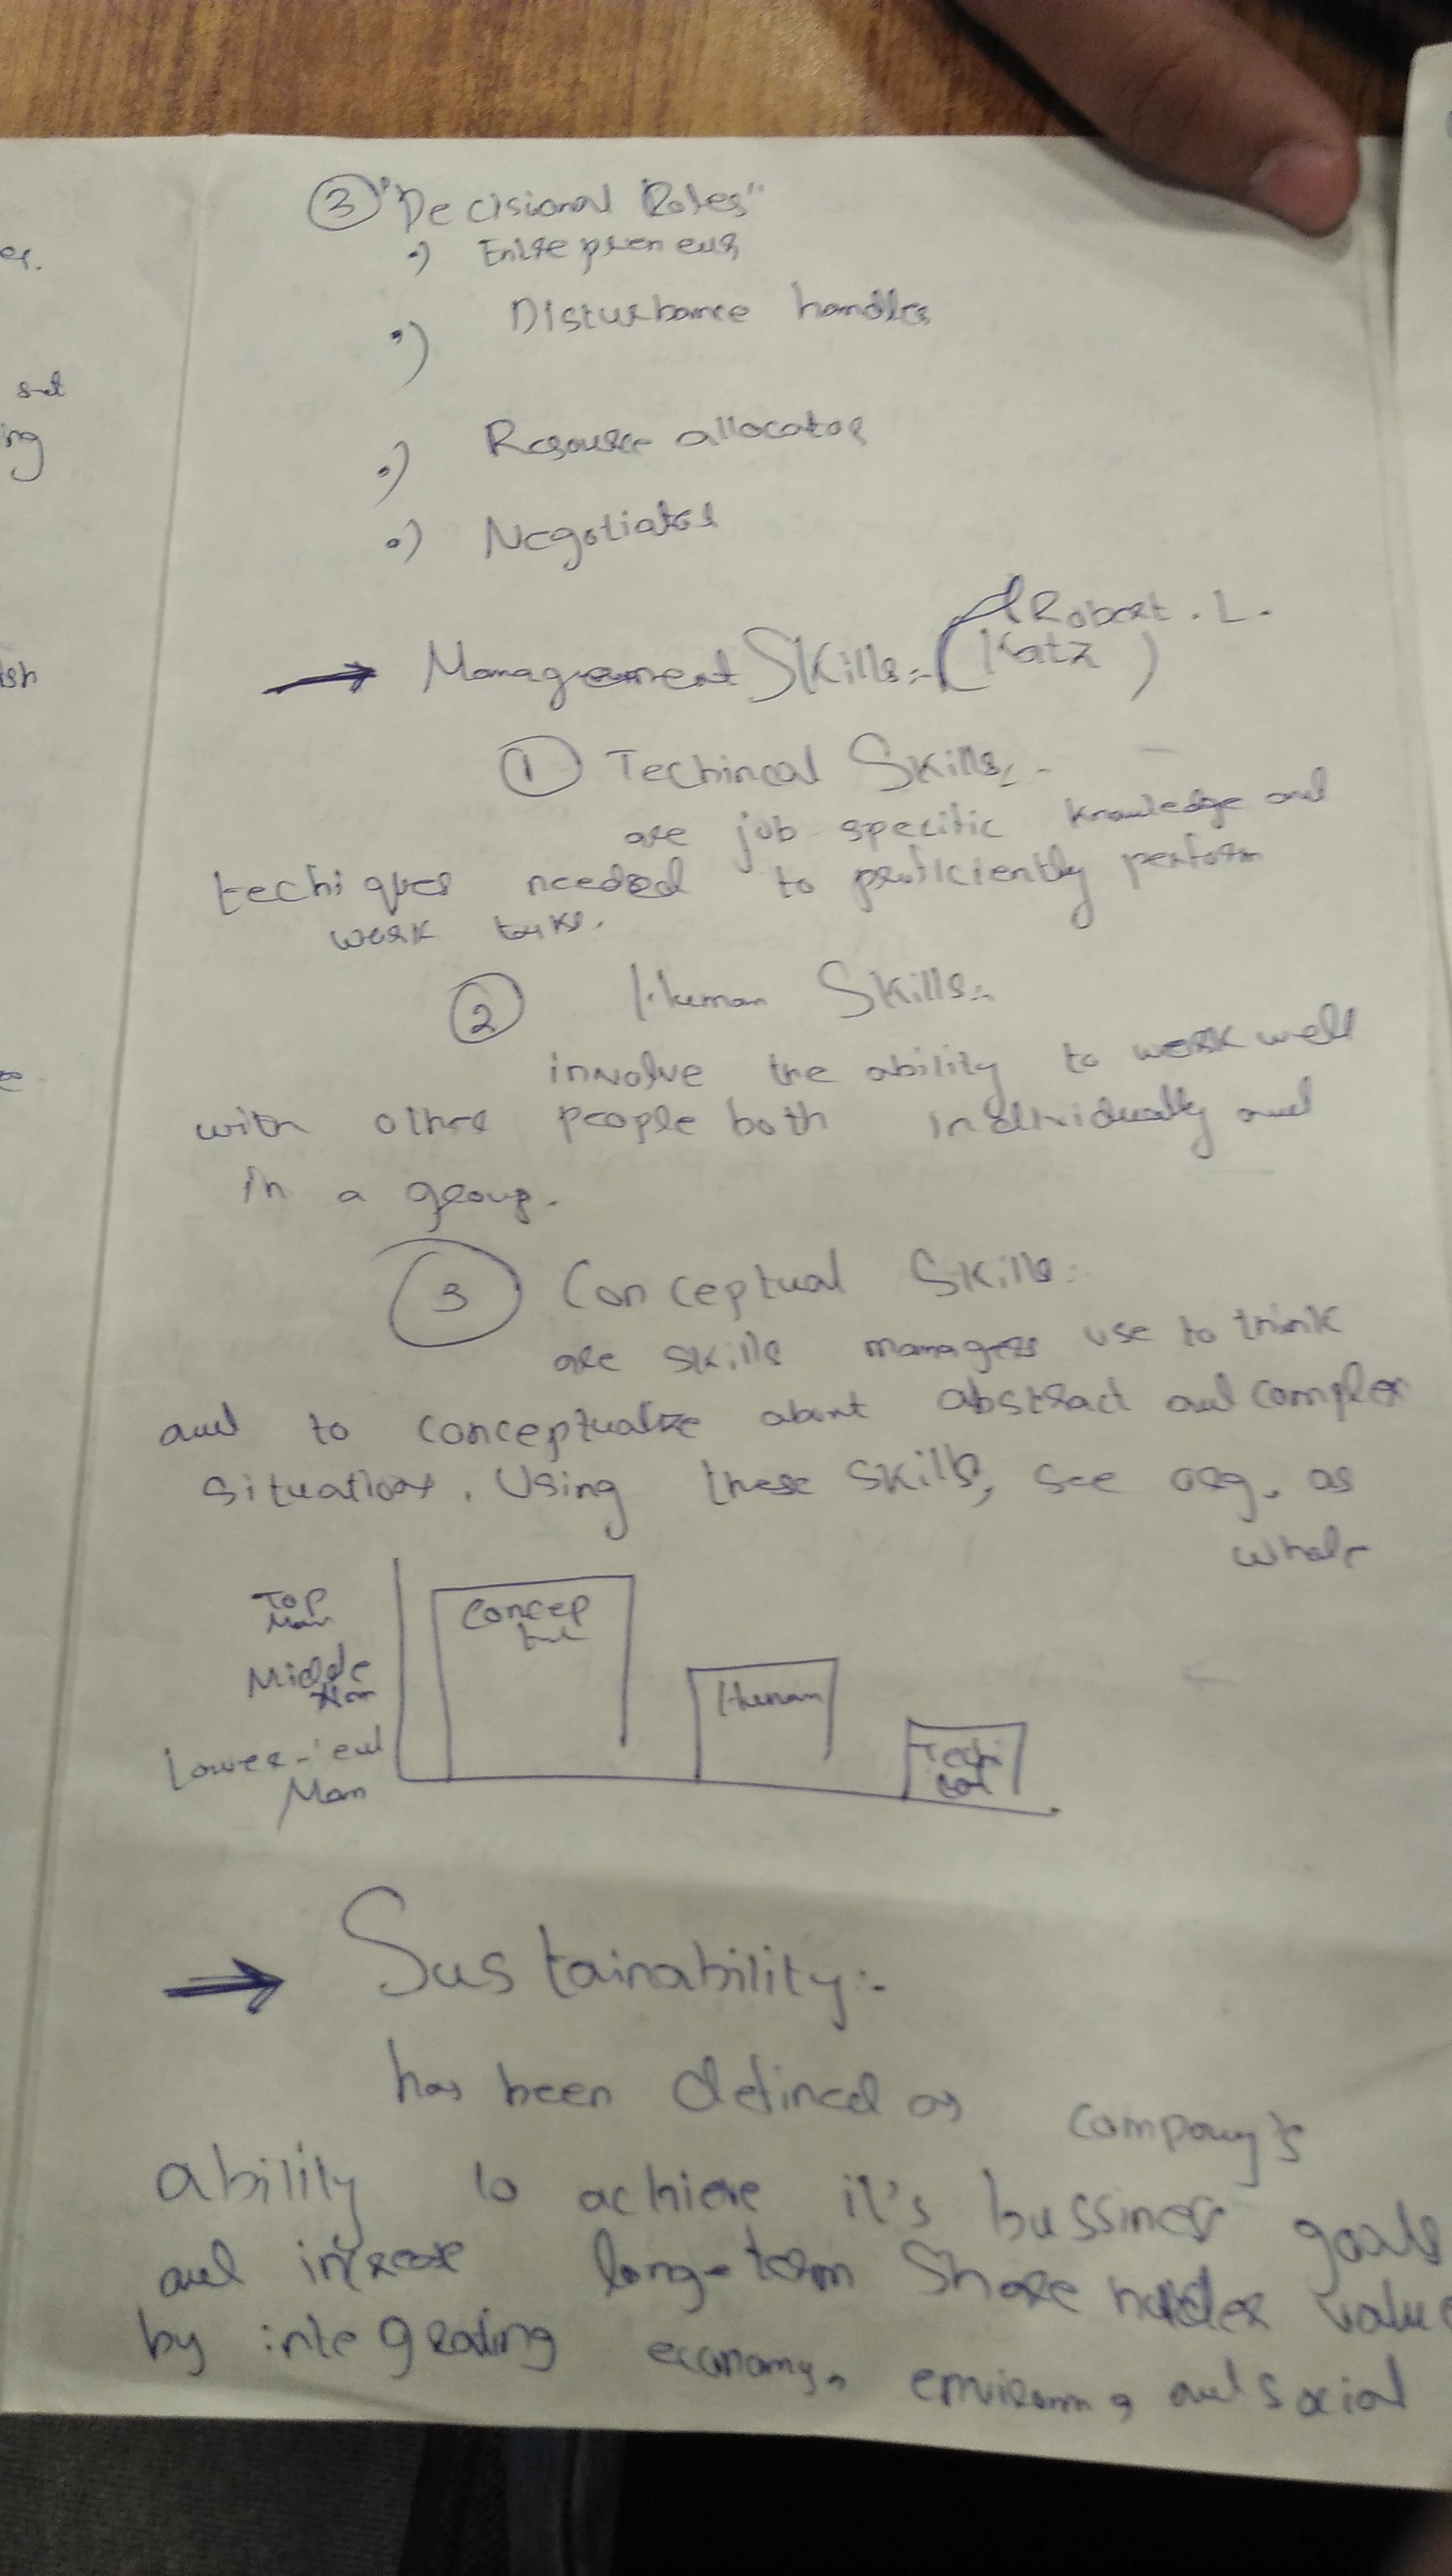 ③ "Decisional Roles"
•) Entrepreneur
•) Disturbance handler
•) Resource allocator
•) Negotiator
→ Management Skills:- (Robert. L.
Katz)
① Techincal Skills:-
are job specific knowledge and
techiques needed to proficiently perform
work
② Human Skills:-
involve the ability to work well
with other people both individually and
in a group.
③ Conceptual Skills:
are skills managers use to think
and to conceptualize about abstract and complex
situations. Using these skills, see org. as
whole
Top
Man
Middle
Man
Lower-
Man
Concep
Human
Techi
cal
→ Sustainability:-
has been defined as company's
ability to achieve it's bussiness goals
and long-term Share holder value
by integrating economy, environm, and social
er.
set
ing
ish
e